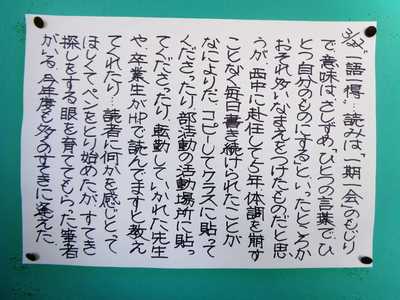 3/22 "一語一得"…読みは、「一期一会のもじり
で、意味は、さしずめ、ひとつの言葉でひ
とつ自分のものにする」といったところか
おそれ多いなまえをつけたものだと思
うが、西中に赴任して5年体調を崩す
ことなく毎日書き続けられたことが
なによりだ。コピーしてクラスに貼って
くださったり、部活動の活動場所に貼っ
てくださったり、転勤していかれた先生
や、卒業生がHPで読んでますと教え
てくれたり…読者に何かを感じとって
ほしくてペンをとり始めたが、すてき
探しをする眼を育ててもらった筆者
がいる。今年度も多くのすてきに逢えた